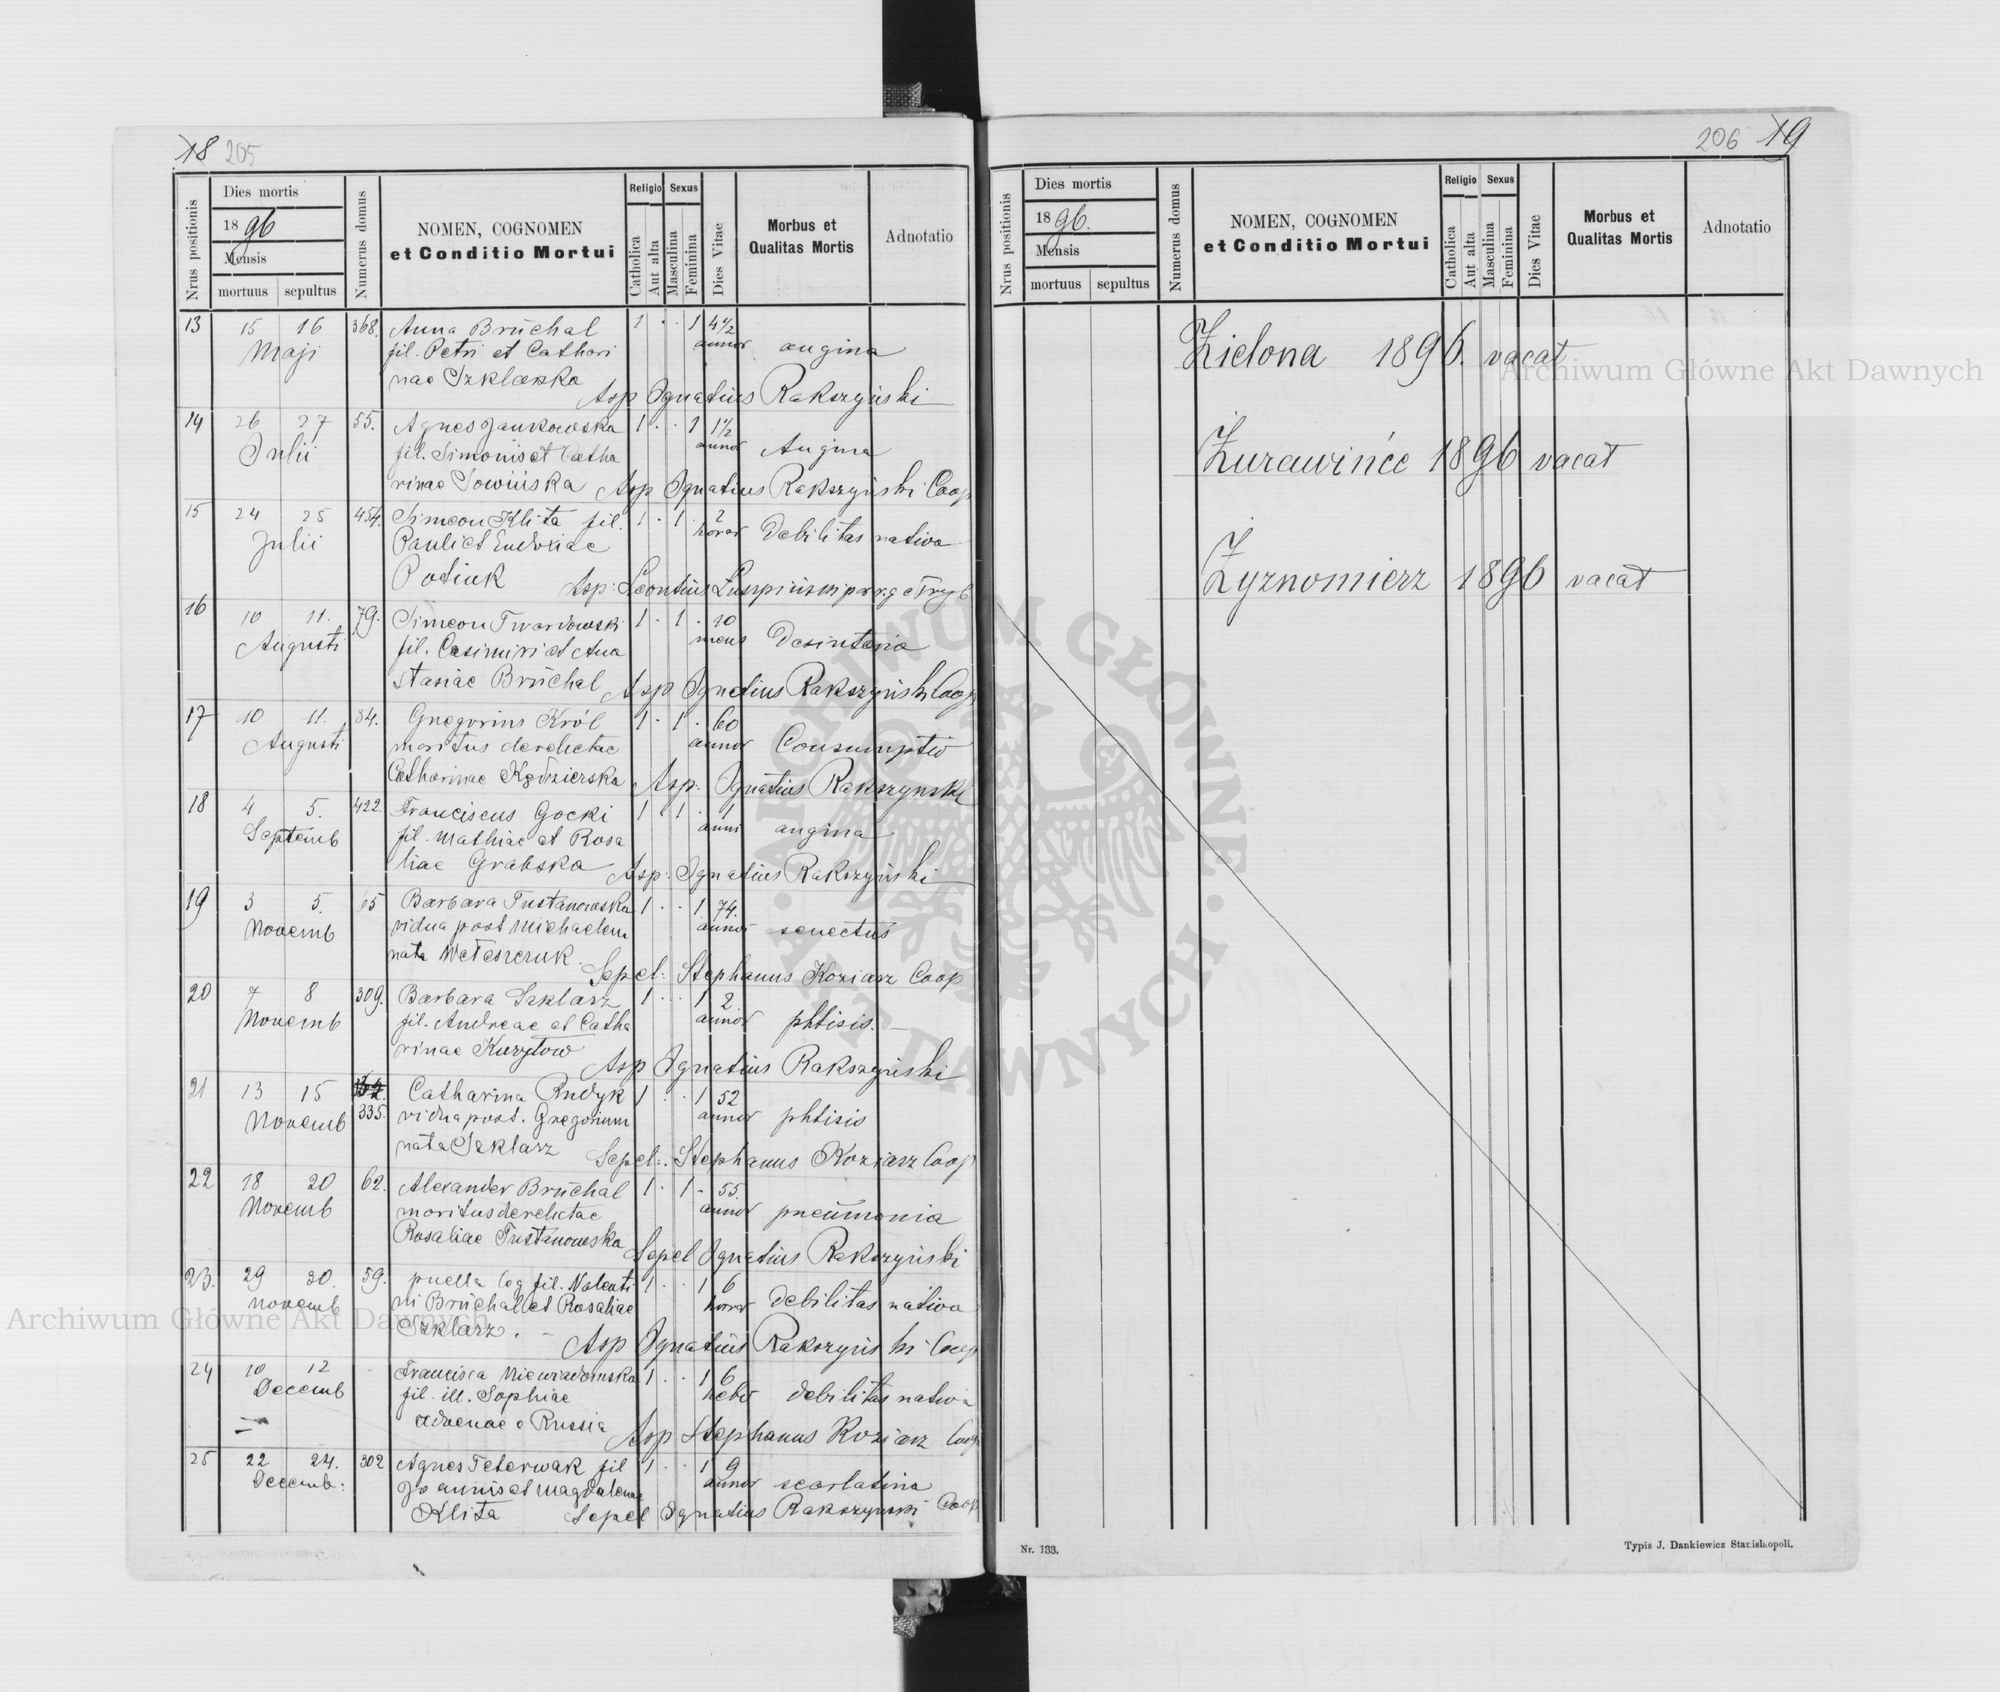 18 205
Nrus positionis
Dies mortis
1896
Mensis
mortuus sepultus
Numerus domus
NOMEN, COGNOMEN
et Conditio Mortui
Religio
Catholica
Aut alta
Sexus
Masculina
Feminina
Dies Vitae
Morbus et
Qualitas Mortis
Adnotatio
13 15 16 368. Anna Brüchal 1 · · 1 4 1/2
Maji fil. Petri et Cathari annor angina
nae Szklarska
Asp Ignatius Rakszyński
14 26 27 55. Agnes Jankowska 1 · · 1 1 1/2
Julii fil. Simonis et Catha annor Angina
rinae Sowińska Asp Ignatius Rakszyński Coop
15 24 25 454. Simeon Klita fil. 1 · 1 · 2
Julii Pauli et Eudoxiae horar debilitas nativa
Potiuk Asp: Leontius
16 10 11. 79. Simeon Twardowski 1 · 1 · 10
Augusti fil. Casimiri et Ana mens desinteria
stasiae Brüchal Asp Ignatius Rakszyński Coop
17 10 11. 34. Gregorius Król 1 · 1 · 60
Augusti maritus derelictae annor Consumptio
Catharinae Kędzierska Asp: Ignatius Rakszynski
18 4 5. 422 Franciscus Gocki 1 · 1 · 1
Septemb fil. Mathiae et Rosa anni angina
liae Grabska Asp: Ignatius Rakszyński
19 3 5. 65 Barbara Tustanowska 1 · · 1. 74.
Novemb vidua post Michaelem annor senectus
nata
Sepel: Stephanus Koziarz Coop
20 7 8 309. Barbara Szklarz 1 · · 1 2
Novemb fil. Andreae et Catha annor phtisis.
rinae Kurytow
Asp Ignatius Rakszyński
21 13 15 335. Catharina Rudyk 1 · · 1 52
Novemb vidua post. Gregorium annor phtisis
nata Szklarz Sepel: Stephanus Koziarz Coop
22 18 20 62. Alexander Brüchal 1 · 1 - 55.
Novemb maritus derelictae annor pneumonia
Rosaliae Tustanowska
Sepel Ignatius Rakszyński
23. 29 30. 59. puella fil. Valenti 1 · · 1 6
novemb ni Brüchal et Rosaliae horar debilitas nativa
Szklarz. - Asp Ignatius Rakszyński Coop
24 10 12 - Francisca Niewiadomska 1 · · 1 6
Decemb fil. ill. Sophiae hebd debilitas nativa
advenae e Russia
Asp Stephanus Koziarz Coop
25 22 24. 302 Agnes Teterwak fil 1 · · 1 9
Decemb: Joannis et Magdalenae annor scarlatina
Klita Sepel Ignatius Rakszynski Coop
206 19
Nrus positionis
Dies mortis
1896.
Mensis
mortuus sepultus
Numerus domus
NOMEN, COGNOMEN
et Conditio Mortui
Religio
Catholica
Aut alta
Sexus
Masculina
Feminina
Dies Vitae
Morbus et
Qualitas Mortis
Adnotatio
Zielona 1896. vacat
Żurawińce 1896 vacat
Żyznomierz 1896 vacat
Nr. 133.
Typis J. Dankiewicz Stanislaopoli.
Archiwum Główne Akt Dawnych
Archiwum Główne Akt Dawnych
ARCHIWUM GŁÓWNE · AKT DAWNYCH ·